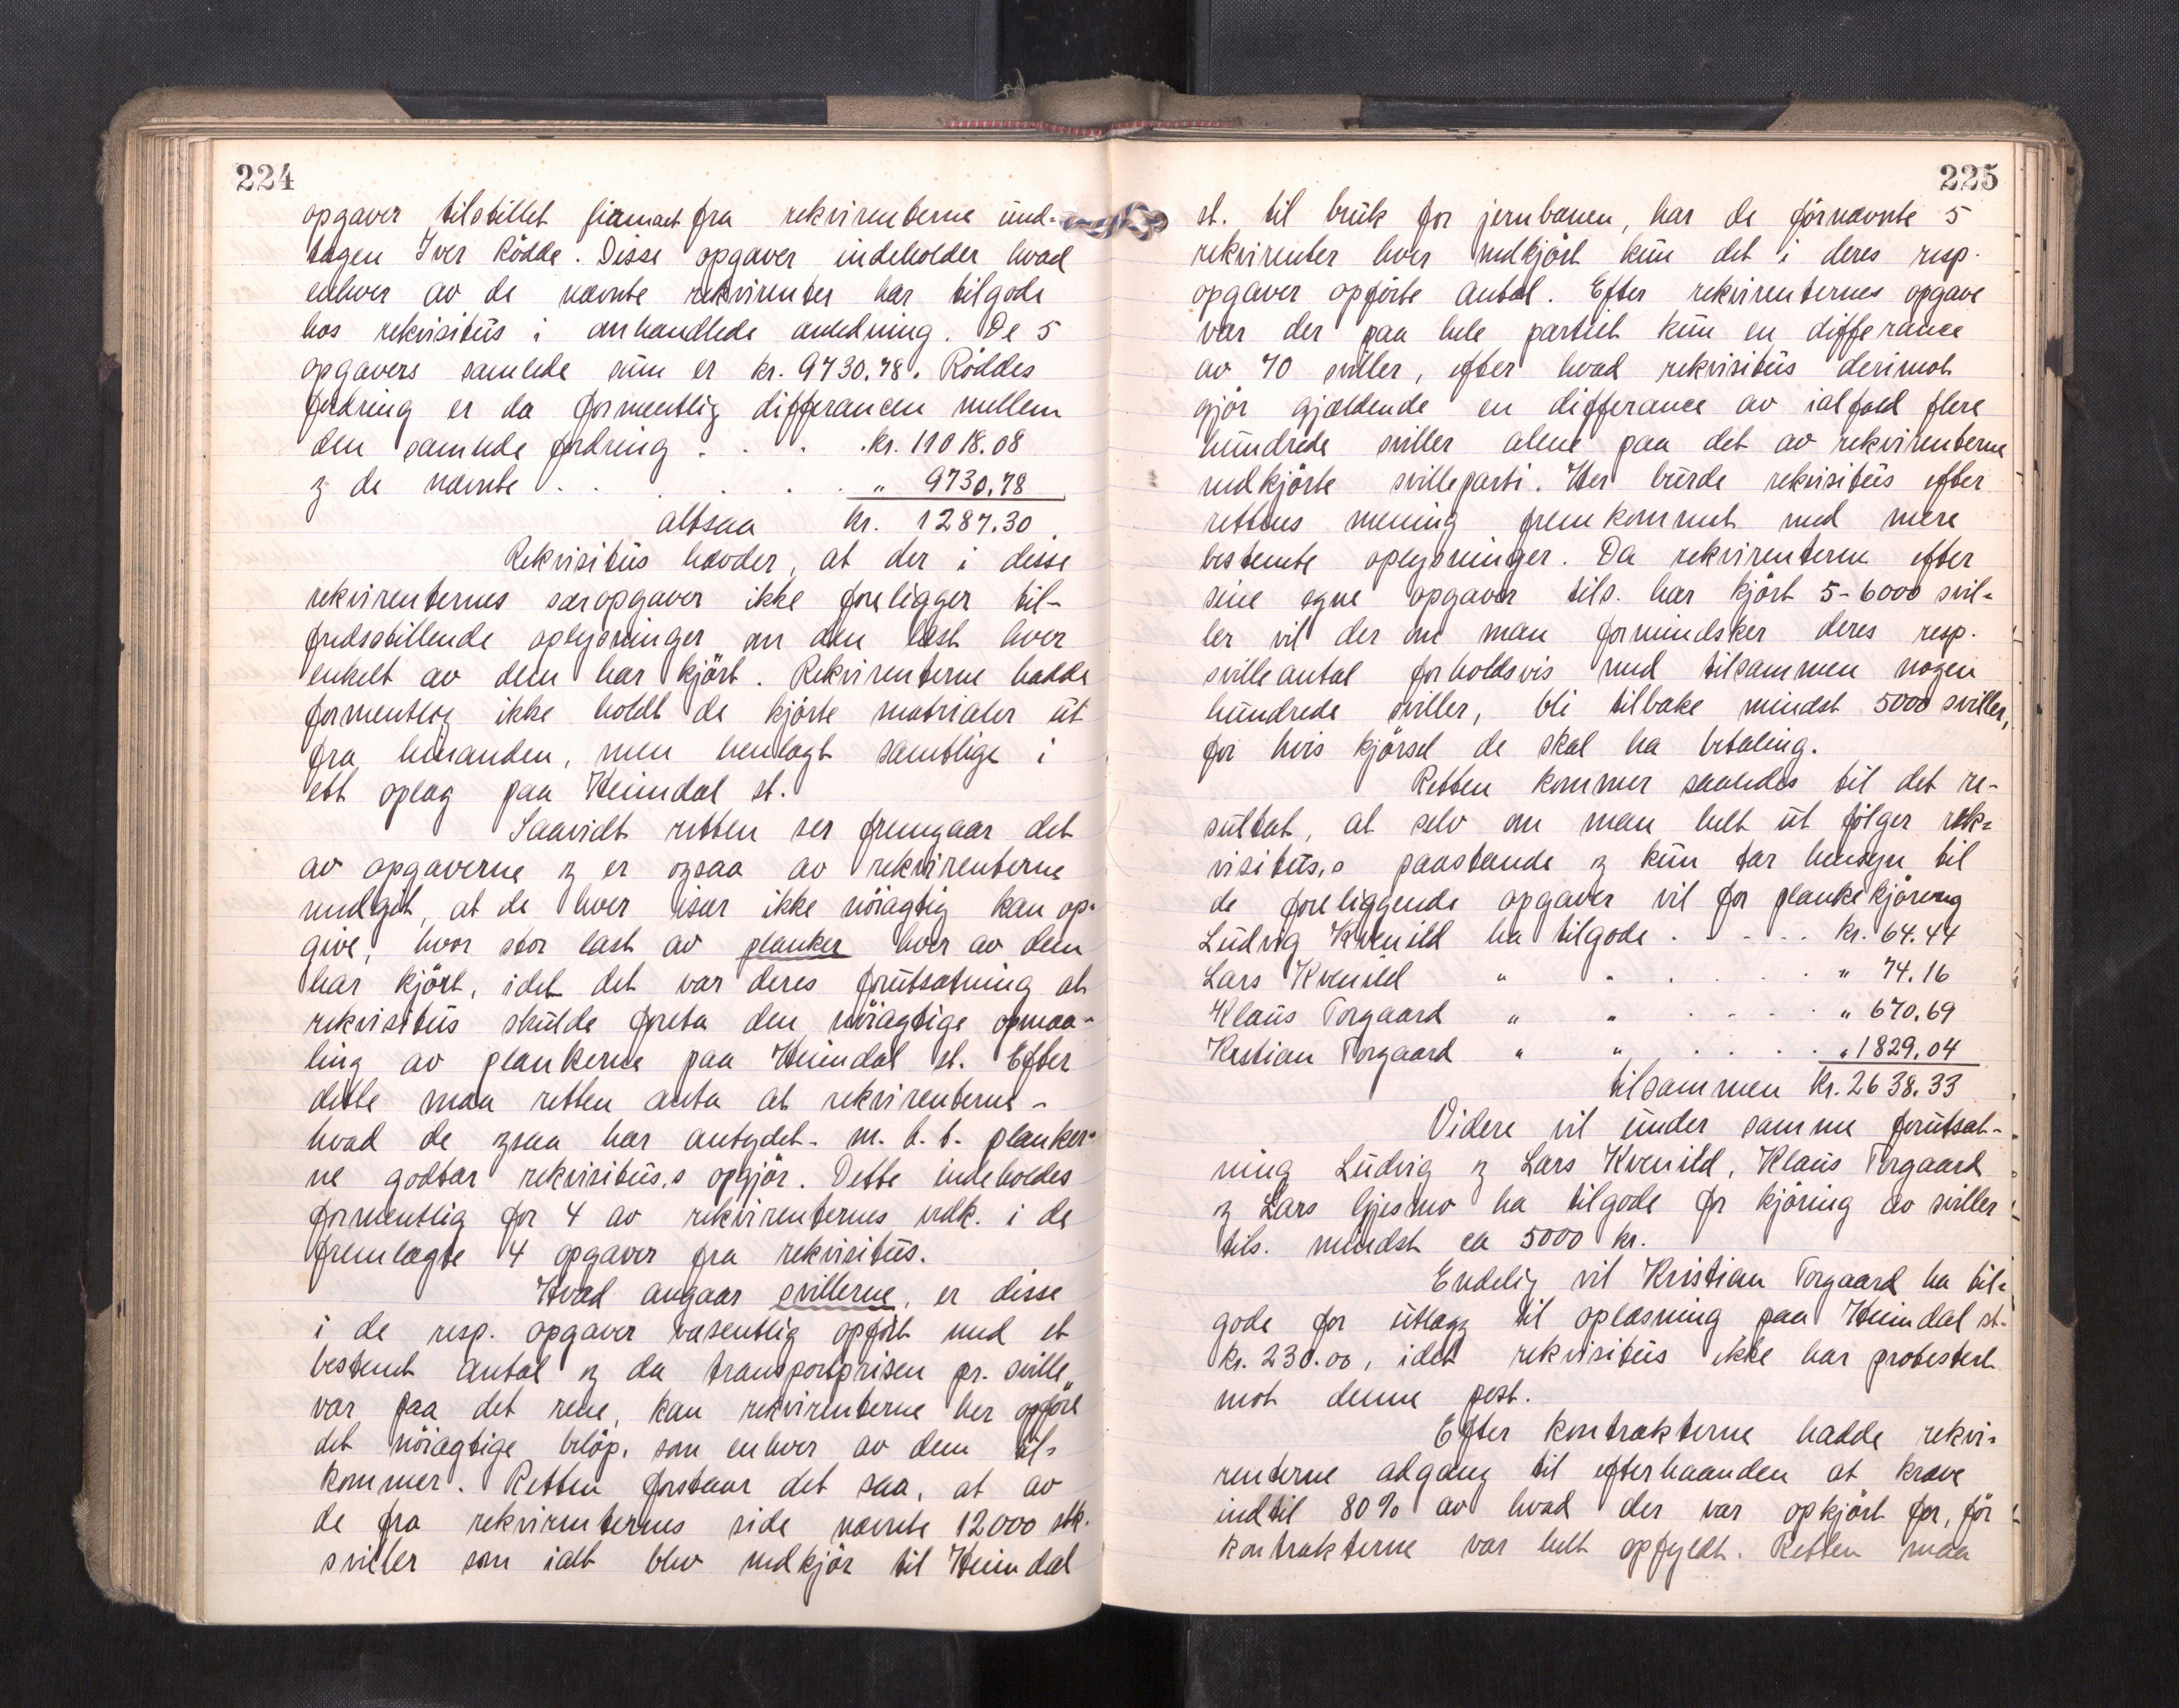 224
opgaver tilstillet firmaet fra rekvirenterne und-
tagen Iver Rödde. Disse opgaver indeholder hvad
enhver av de nævnte rekvirenter har tilgode
hos rekvisitus i omhandlede anledning. De 5
opgavers samlede sum er kr. 9730.78. Röddes
fordring er da formentlig differancen mellem
den samlede fordring . . . . kr. 11018.08
og de nævnte . . . . . . " 9730.78
altsaa kr. 1287.30
Rekvisitus hævder, at der i disse
rekvirenternes særopgaver ikke foreligger til-
fredsstillende oplysninger om den last hver
enkelt av dem har kjört. Rekvirenterne hadde
formentlig ikke holdt de kjörte materialer ut
fra hinanden, men henlagt samtlige i
ett oplag paa Heimdal st.
Saavidt retten ser fremgaar det
av opgaverne og er ogsaa av rekvirenterne
medgit, at de hver især ikke nöiagtig kan op-
give, hvor stor last av planker hver av dem
har kjört, idet det var deres forutsætning at
rekvisitus skulde foreta den nöiagtige opmaa-
ling av plankerne paa Heimdal st. Efter
dette maa retten anta at rekvirenterne -
hvad de ogsaa har antydet - m. h. t. planker-
ne godtar rekvisitus,s opgjör. Dette indeholdes
formentlig for 4 av rekvirenternes vedk. i de
fremlagte 4 opgaver fra rekvisitus.
Hvad angaar svillerne, er disse
i de resp. opgaver væsentlig opfört med et
bestemt antal og da transportprisen pr. sville
var paa det rene, kan rekvirenterne her opföre
det nöiagtige belöp, som enhver av dem til-
kommer. Retten forstaar det saa, at av
de fra rekvirenternes side nævnte 12000 stk.
sviller som ialt blev nedkjör til Heimdal
225
st. til bruk for jernbanen, har de förnævnte 5
rekvirenter hver nedkjört kun det i deres resp.
opgaver opförte antal. Efter rekvirenternes opgave
var der paa hele partiet kun en differance
av 70 sviller, efter hvad rekvisitus derimot
gjör gjældende en differance av ialfald flere
hundrede sviller alene paa det av rekvirenterne
nedkjörte svilleparti. Her burde rekvisitus efter
rettens mening fremkommet med mere
bestemte oplysninger. Da rekvirenterne efter
sine egne opgaver tils. har kjört 5-6000 svil-
ler vil der om man formindsker deres resp.
svilleantal forholdsvis med tilsammen nogen
hundrede sviller, bli tilbake mindst 5000 sviller,
for hvis kjörsel de skal ha betaling.
Retten kommer saaledes til det re-
sultat, at selv om man helt ut fölger rek-
visitus,s paastande og kun tar hensyn til
de foreliggende opgaver vil for plankekjöring
Ludvig Kvenild ha tilgode . . . . . kr. 64.44
Lars Kvenild " " . . . . " 74.16
Klaus Torgaard " " . . . . . " 670.69
Kristian Torgaard " " . . . . " 1829.04
tilsammen kr. 2638.33
Videre vil under samme forutsæt-
ning Ludvig og Lars Kvenild, Klaus Torgaard
og Lars Gjesmo ha tilgode for kjöring av sviller
tils. mindst ca 5000 kr.
Endelig vil Kristian Torgaard ha til-
gode for utlæg til oplæsning paa Heimdal st.
kr. 230.00, idet rekvisitus ikke har protestert
mot denne post.
Efter kontrakterne hadde rekvi-
renterne adgang til efterhaanden at kræve
indtil 80% av hvad der var opkjört for, för
kontrakterne var helt opfyldt. Retten maa